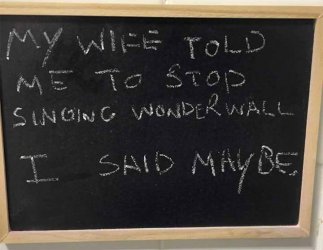 MY WIFE TOLD
ME TO STOP
SINGING WONDERWALL
I SAID MAYBE